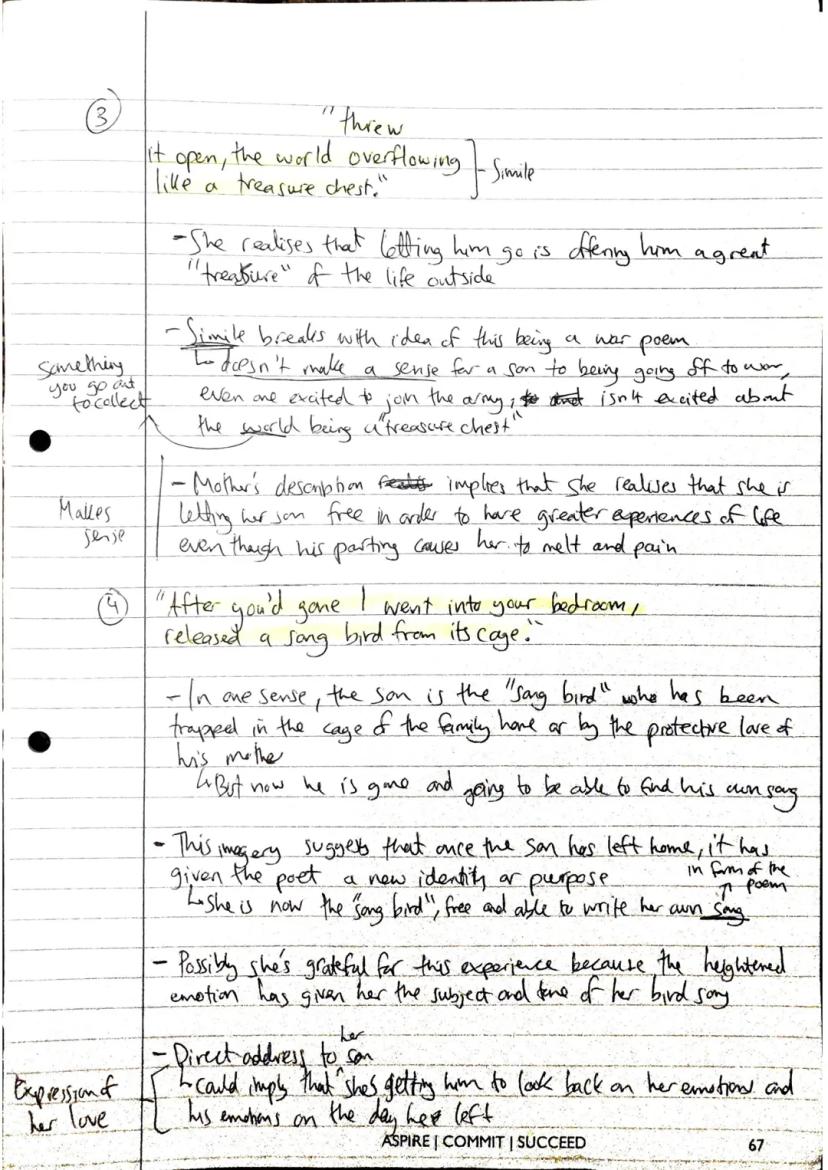 ③
"threw
it open, the world overflowing
like a treasure chest."
Simile
- She realises that letting him go is offering him a great
"treasure" of the life outside
- Simile breaks with idea of this being a war poem
↳ doesn't make a sense for a son to being going off to war,
even one excited to join the army, isn't excited about
the world being a "treasure chest"
Something
you go out
to collect
- Mother's description implies that she realises that she is
letting her son free in order to have greater experiences of life
even though his parting causes her to melt and pain
Makes
sense
④
"After you'd gone I went into your bedroom,
released a song bird from its cage."
- In one sense, the son is the "song bird" who has been
trapped in the cage of the family home or by the protective love of
his mothe
↳ But now he is gone and going to be able to find his own song
- This imagery suggests that once the son has left home, it has
given the poet a new identity or purpose
in form of the
poem
↳ She is now the "song bird", free and able to write her own song
- Possibly she's grateful for this experience because the heightened
emotion has given her the subject and tone of her bird song
- Direct address to her son
↳ could imply that she's getting him to look back on her emotions and
his emotions on the day he left
Expression of
her love
ASPIRE | COMMIT | SUCCEED
67